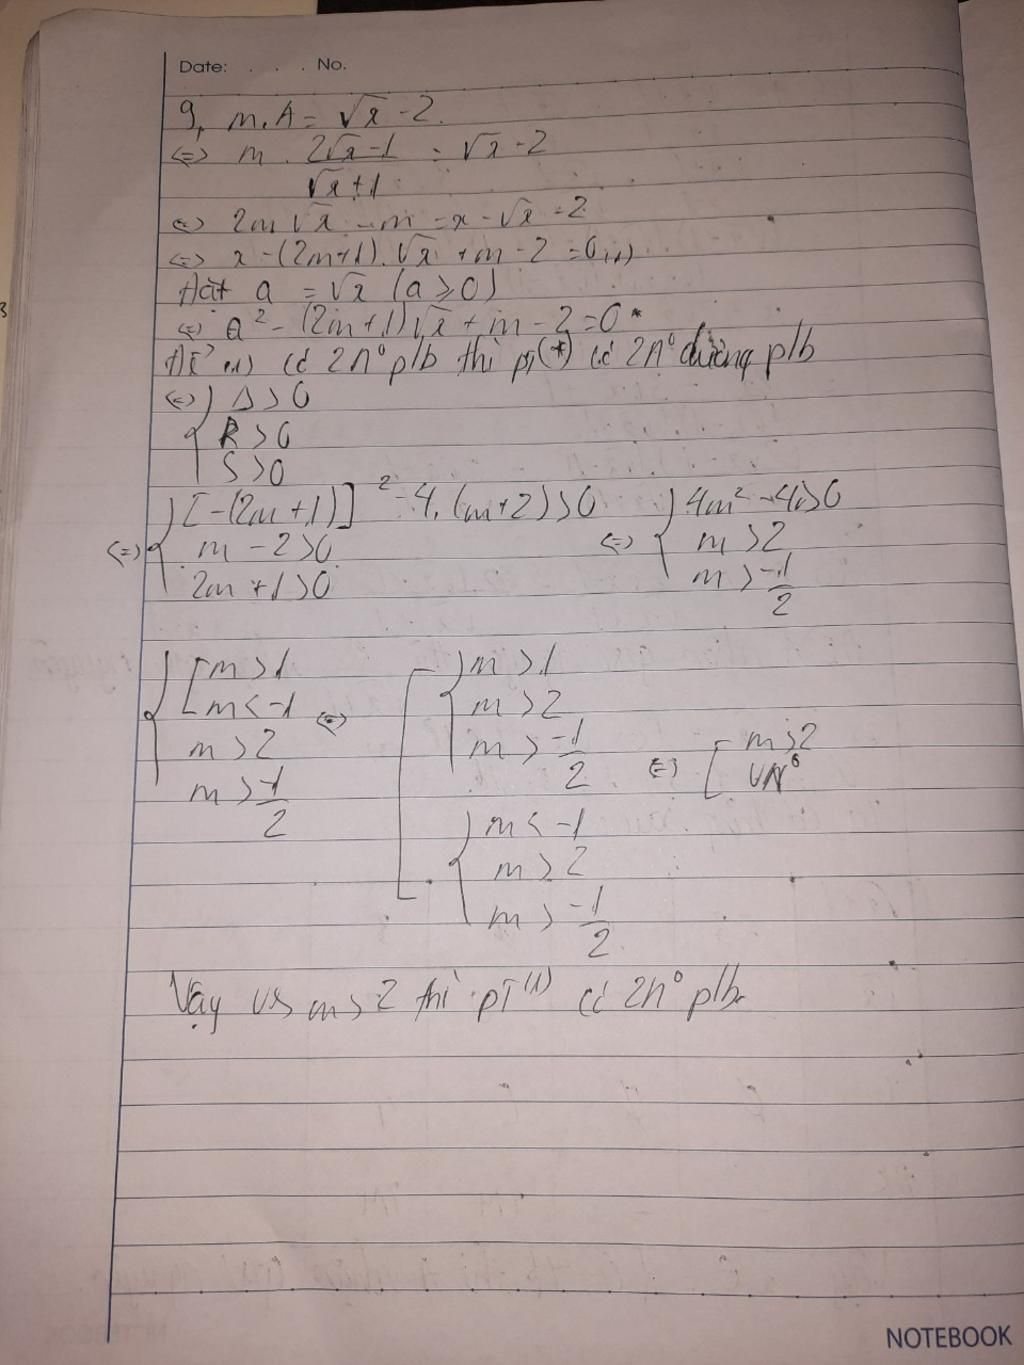 Date: . . . No.
g, m.A = √x - 2.
<=> m . (2√x - 1)/(√x + 1) = √x - 2
<=> 2m√x - m = x - √x - 2
<=> x - (2m+1).√x + m - 2 = 0 (1)
Đặt a = √x (a ≥ 0)
<=> a² - (2m+1)√x + m - 2 = 0 *
Để (1) có 2n⁰ plb thì pt (*) có 2n⁰ dương plb
<=> { Δ > 0
P > 0
S > 0
<=> { [-(2m+1)]² - 4.(m+2) > 0 <=> { 4m² - 4 > 0
m - 2 > 0 m > 2
2m + 1 > 0 m > -1/2
{ [ m > 1 [ { m > 1
m < -1 <=> m > 2
m > 2 m > -1/2 <=> [ m > 2
m > -1/2 VN⁰
{ m < -1
m > 2
m > -1/2
Vậy vs m > 2 thì pt (1) có 2n⁰ plb.
NOTEBOOK